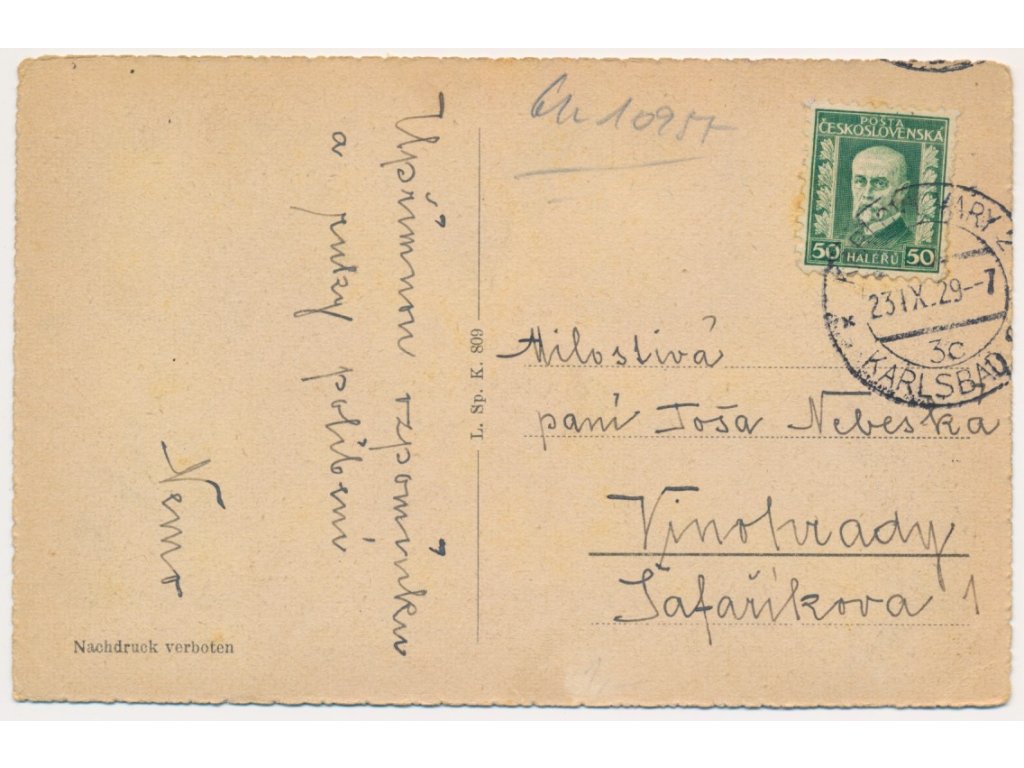 Upřímnou vzpomínku
a ruky políbení
Nemo
Nachdruck verboten
L. Sp. K. 809
10957
POŠTA
ČESKOSLOVENSKÁ
50 HALÉŘŮ 50
KARLOVY VARY 2
23.IX.29-7
3c
* KARLSBAD 2
Milostivá
paní Joša Nebeská
Vinohrady
Šafaříkova 1